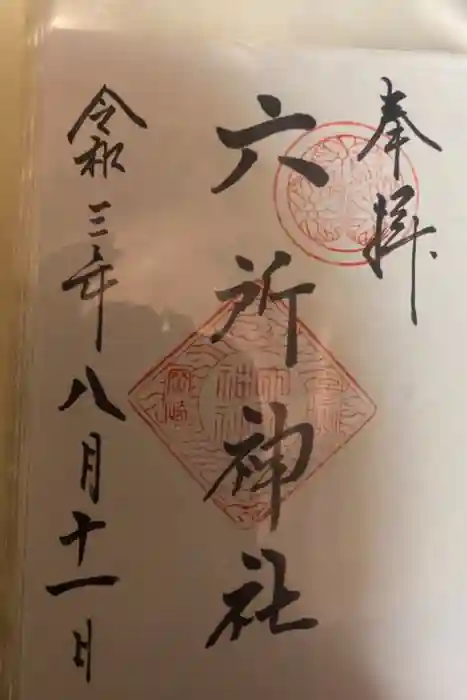 奉拝
六所神社
令和三年八月十一日
岡崎